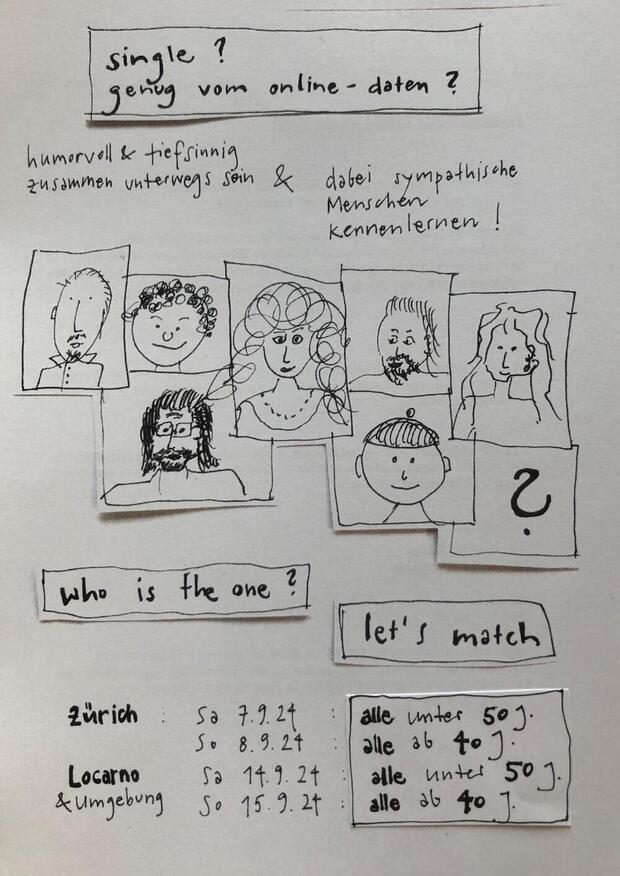 single ?
genug vom online-daten ?
humorvoll & tiefsinnig
zusammen unterwegs sein & dabei sympathische
Menschen
kennenlernen !
?
who is the one ?
let's match
Zürich : Sa 7.9.24 : alle unter 50 J.
So 8.9.24 : alle ab 40 J.
Locarno Sa 14.9.24 : alle unter 50 J.
& Umgebung So 15.9.24 : alle ab 40 J.